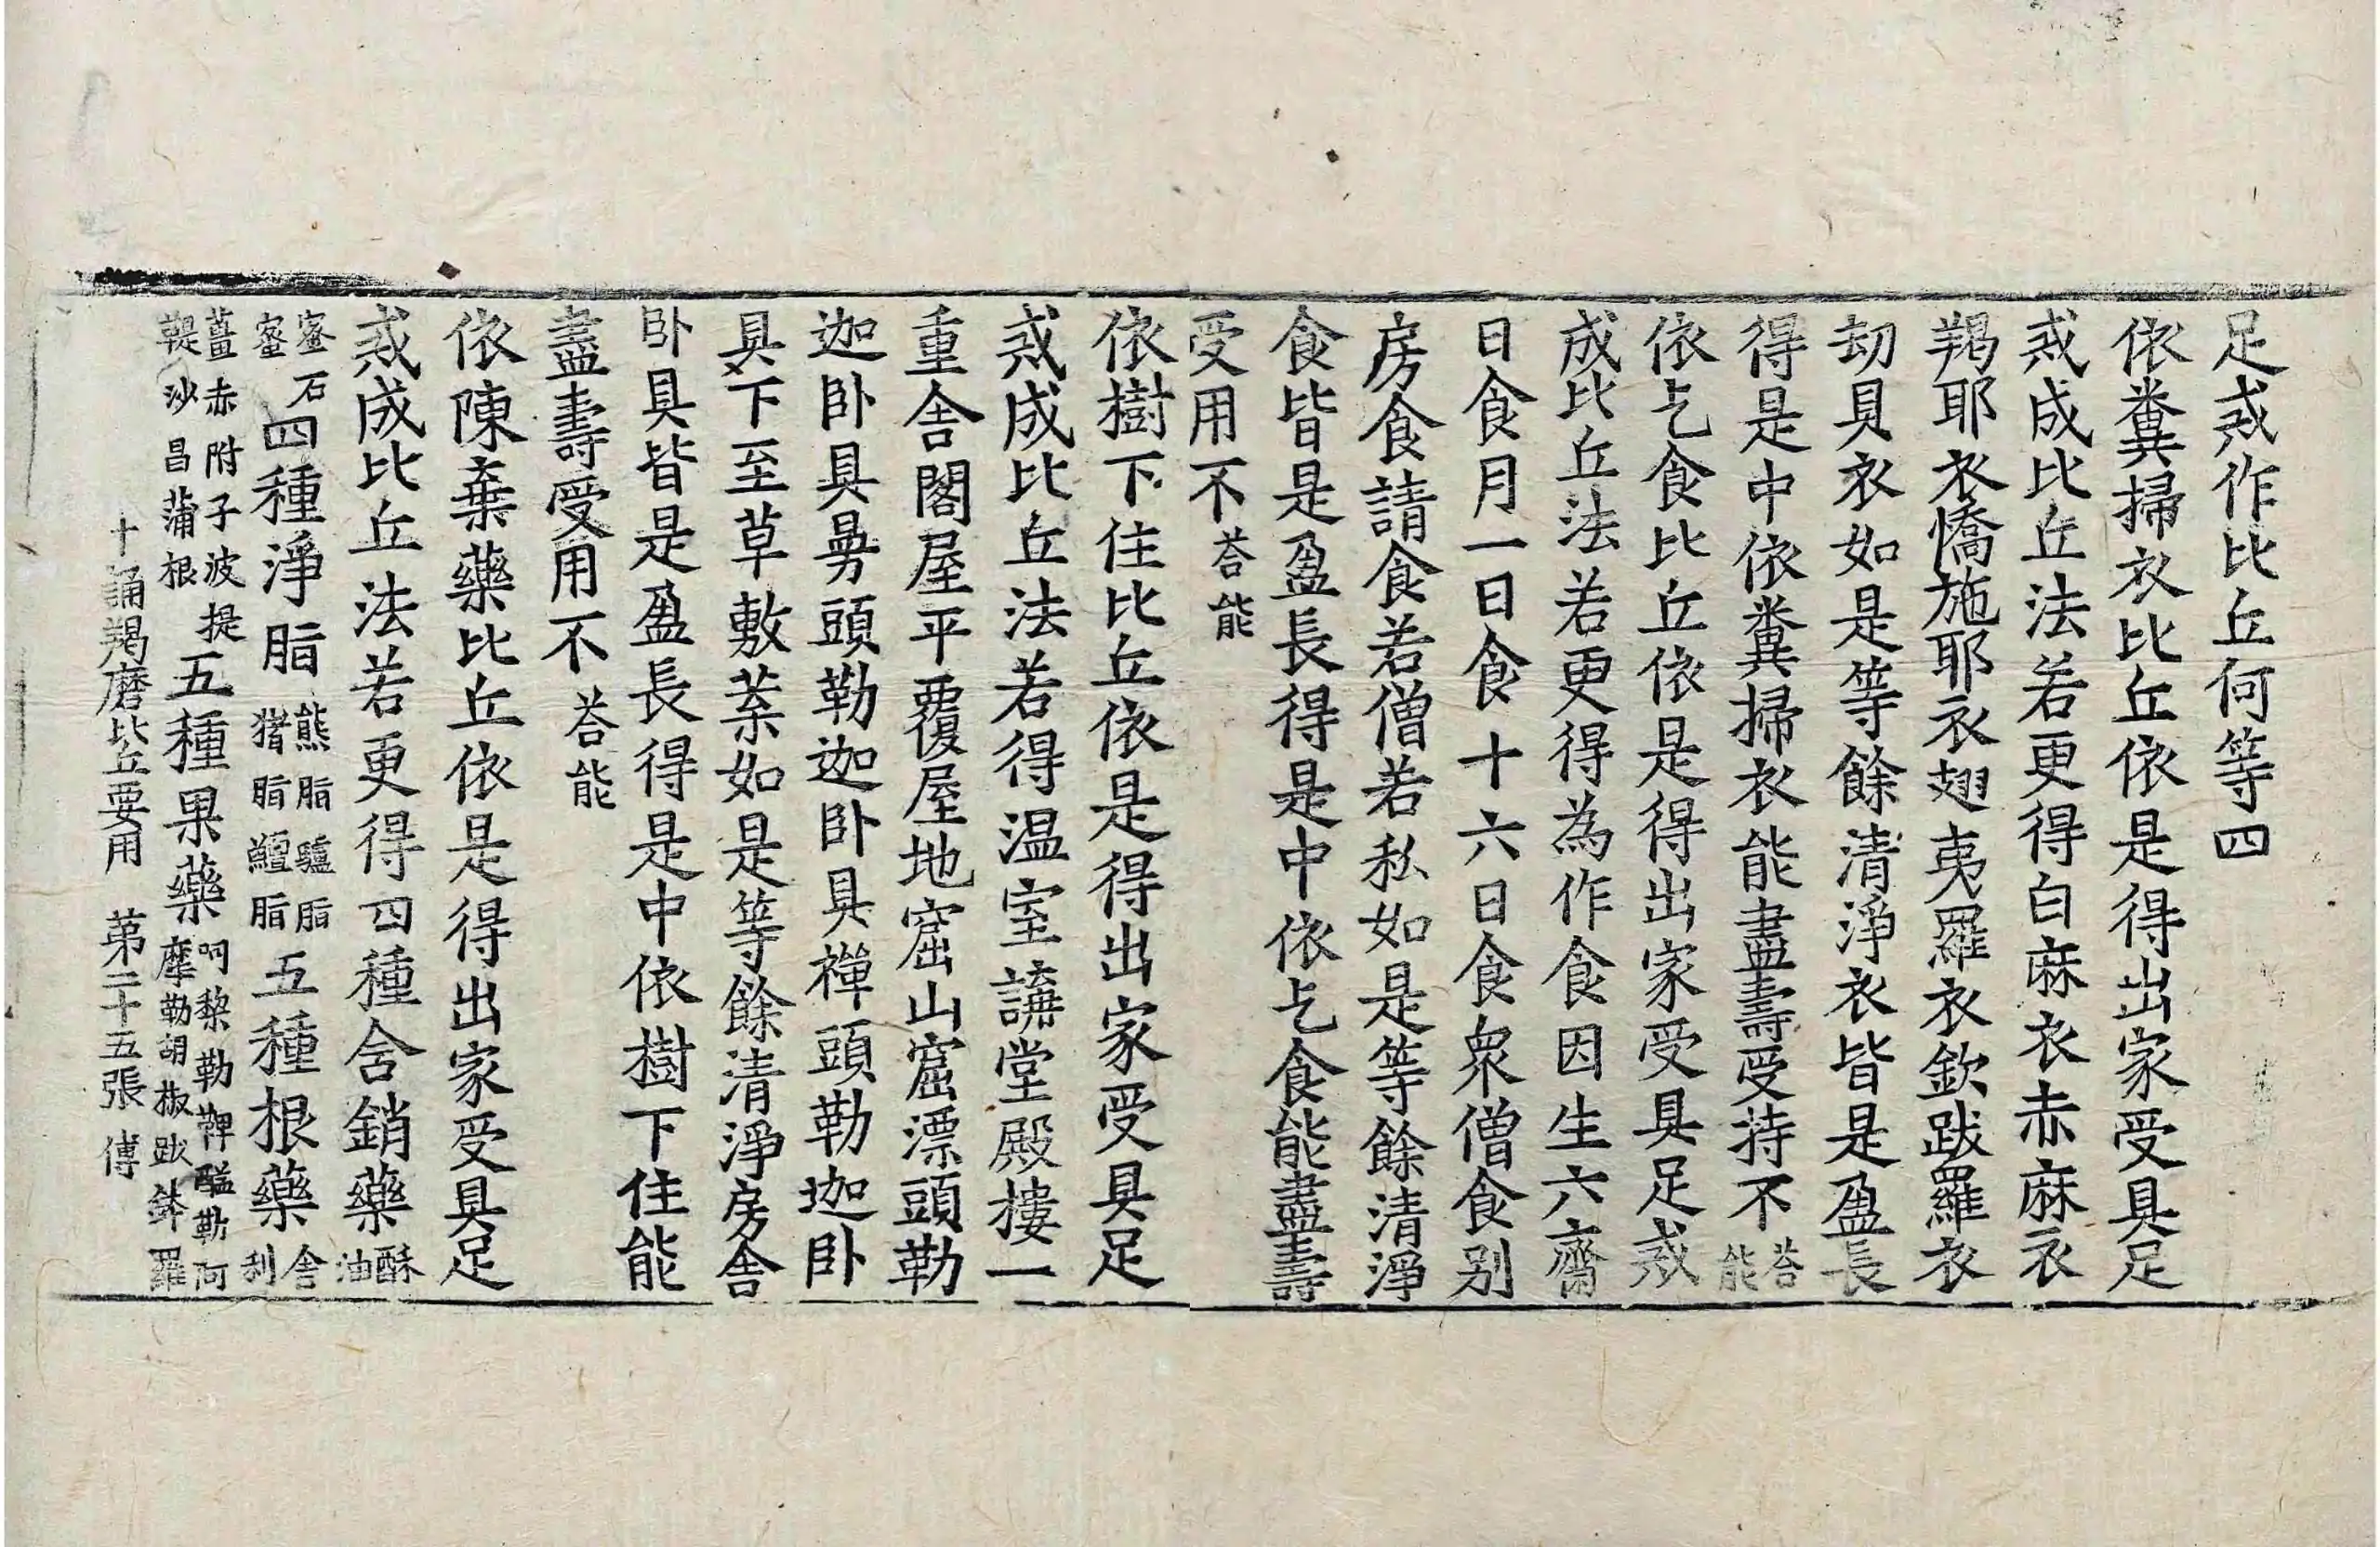 足戒作比丘何等四
依糞掃衣比丘依是得出家受具足
戒成比丘法若更得白麻衣赤麻衣
羯耶衣憍施耶衣翅夷羅衣欽跋羅衣
劫貝衣如是等餘清淨衣皆是盈長
得是中依糞掃衣能盡壽受持不荅能
依乞食比丘依是得出家受具足戒
成比丘法若更得為作食因生六齋
日食月一日食十六日食眾僧食別
房食請食若僧若私如是等餘清淨
食皆是盈長得是中依乞食能盡壽
受用不荅能
依樹下住比丘依是得出家受具足
戒成比丘法若得温室講堂殿樓一
重舍閣屋平覆屋地窟山窟漂頭勒
迦卧具㝹頭勒迦卧具禪頭勒迦卧
具下至草敷葉如是等餘清淨房舍
卧具皆是盈長得是中依樹下住能
盡壽受用不荅能
依陳棄藥比丘依是得出家受具足
戒成比丘法若更得四種含銷藥酥油
蜜石蜜四種淨脂熊脂驢脂猪脂鱣脂五種根藥舍利
薑赤附子波提鞮沙昌蒲根五種果藥呵黎勒鞞醯勒阿摩勒胡椒跋鉢羅
十誦羯磨比丘要用　第二十五張　傅